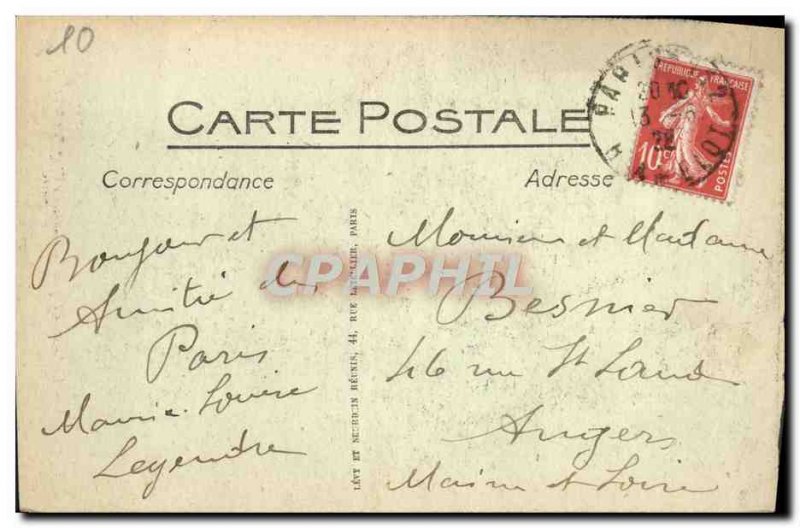 10
CARTE POSTALE
Correspondance
Adresse
REPUBLIQUE FRANÇAISE
10c
POSTES
PARIS
22
Bonjour et
Amitié de
Paris
Marie-Louise
Legendre
LÉVY ET NEURDEIN RÉUNIS, 44, RUE LETELLIER, PARIS
Monsieur et Madame
Besnier
46 rue St Laud
Angers
Maine et Loire
CPAPHIL